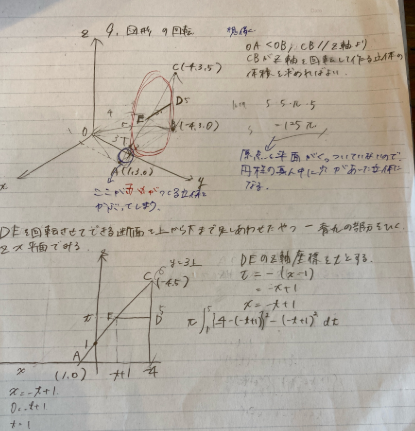 4. 図形の回転
Z
C(-4,3,5)
D 5
E
B(-4,3,0)
4
5
3
A(1,3,0)
x
y
OA < OB, CB // Z軸より
CBがZ軸を回転してできる立体の
体積を求めればよい。
5 5π・5
= 125π
原点と平面がくっついていないので、
円柱の真ん中に穴があいた立体に
なる。
ここが
つくる立体に
かぶってしまう。
DEを回転させてできる断面を上から下まで足しあわせたやつ
の部分をひく。
Zx平面でみる。
C(-4,5)
t
E
5
D
1
A
(1,0)
-t+1
-4
x
DEのZ軸座標をtとする。
t = -(x-1)
= -x+1
x = -t+1
π∫ {4-(-t+1)}² - (-t+1)² dt
x = -t+1
0 = -t+1
t = 1